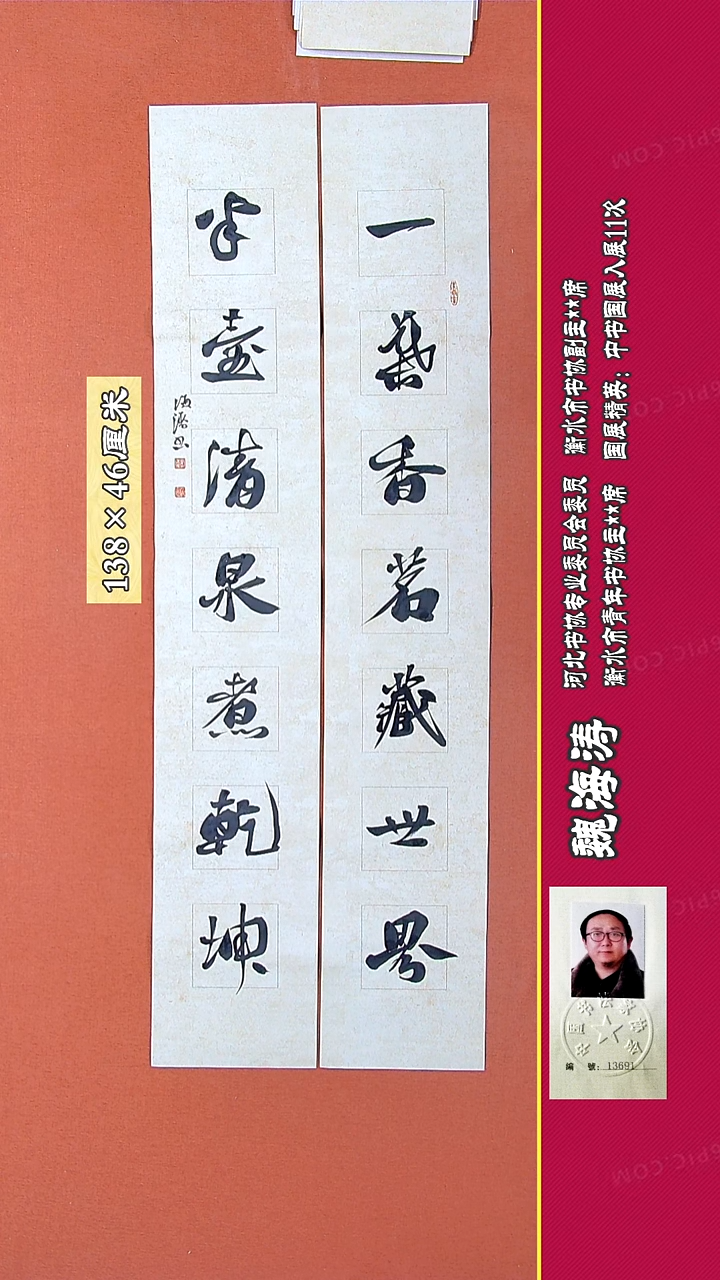 一葉香茗藏世界
半壺清泉煮乾坤
海濤書
138×46厘米
魏海涛
河北书协专业委员会委员 衡水市书协副主**席
衡水市青年书协主**席 国展精英：中书国展入展11次
編 號：13691